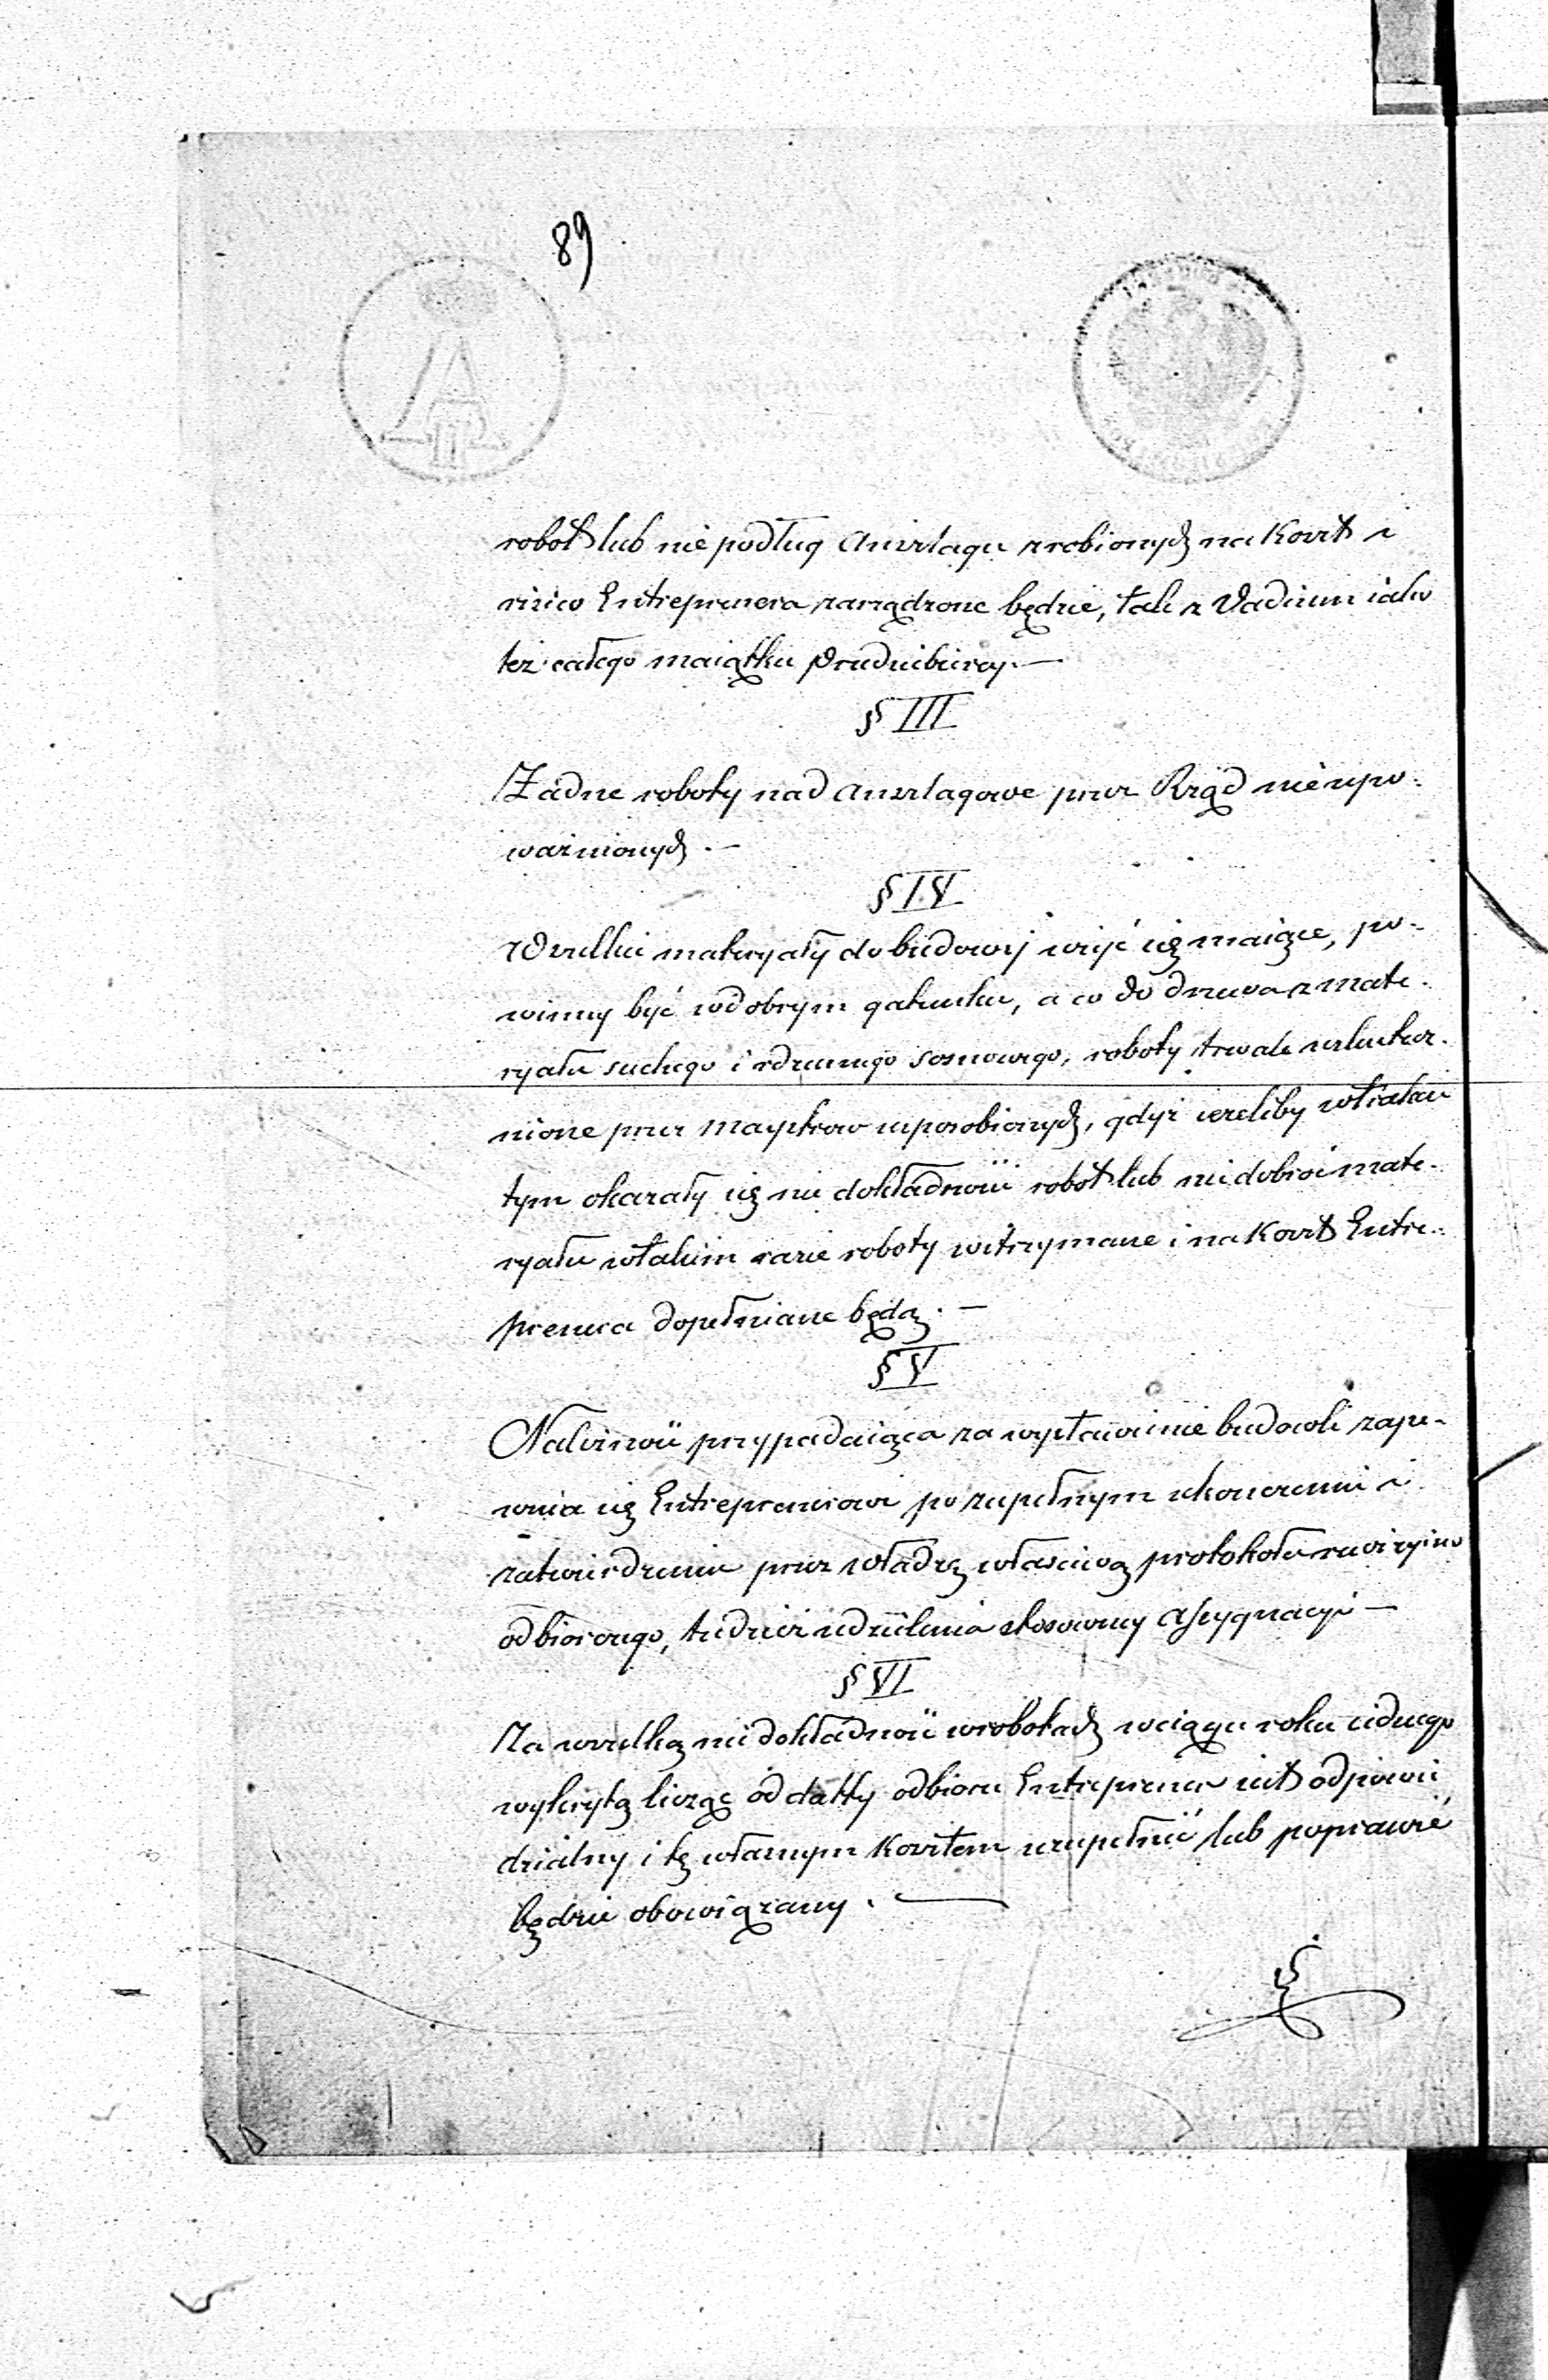 89
robot lub nie podług Anszlagu zrobionych na koszt i
risico Entreprenera zarządzone będzie, tak z Vadium iako
też całego maiątku Przedsiębiercy. —
§ III
Żadne roboty nad anszlagowe przez Rząd nie upo-
ważnionych. —
§ IV
Wszelkie materyały do budowy użyć się maiące, po-
winny być w dobrym gatunku, a co do drzewa z mate-
ryału suchego i zdrowego sosnowego, roboty trwale uskutecz-
nione przez maystrow usposobionych, gdyż ieżeliby
tym okazały się nie dokładności robot lub nie dobroć mate-
ryału w takim razie roboty wstrzymane i na koszt Entre-
prenera dopełniane będą. —
§ V
Należność przypadaiąca za wystawienie budowli zape-
wnia się Entreprenerowi po zupełnym ukończeniu i
zatwierdzeniu przez władzę właściwą protokołu rewizyino
odbiorczego, tudzież udzielenia stosowney assygnacyi —
§ VI
Za wszelką nie dokładność w robotach w ciągu roku iednego
wykrytą licząc od datty odbioru Entreprener iest odpowie
dzialny i tę własnym kosztem uzupełnić lub poprawić
będzie obowiązany. —